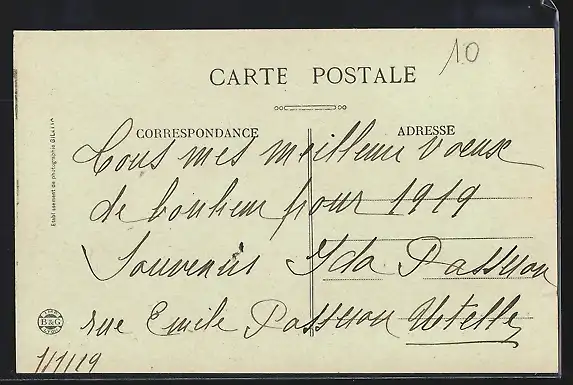 10
CARTE POSTALE
CORRESPONDANCE
ADRESSE
Tous mes meilleurs voeux
de bonheur pour 1919
Souvenirs Ida Passeron
rue Emile Passeron Utelle
1/1/19
B&G
Etablissement de photographie